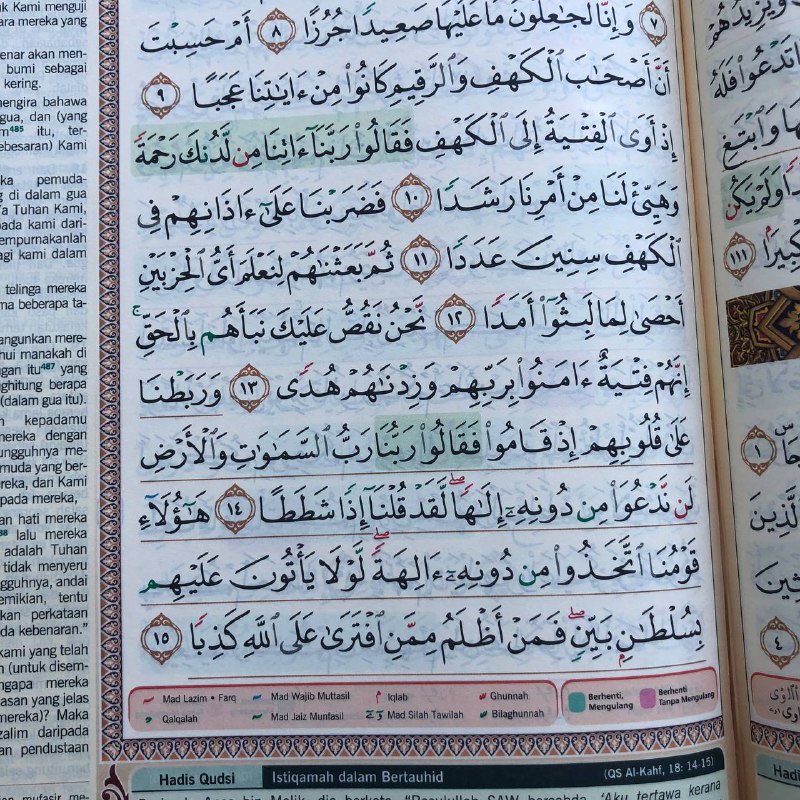 ۷ وَإِنَّا لَجَٰعِلُونَ مَا عَلَيْهَا صَعِيدًا جُرُزًا ۸ أَمْ حَسِبْتَ
أَنَّ أَصْحَٰبَ ٱلْكَهْفِ وَٱلرَّقِيمِ كَانُوا۟ مِنْ ءَايَٰتِنَا عَجَبًا ۹
إِذْ أَوَى ٱلْفِتْيَةُ إِلَى ٱلْكَهْفِ فَقَالُوا۟ رَبَّنَآ ءَاتِنَا مِن لَّدُنكَ رَحْمَةً
وَهَيِّئْ لَنَا مِنْ أَمْرِنَا رَشَدًا ١٠ فَضَرَبْنَا عَلَىٰٓ ءَاذَانِهِمْ فِى
ٱلْكَهْفِ سِنِينَ عَدَدًا ١١ ثُمَّ بَعَثْنَٰهُمْ لِنَعْلَمَ أَىُّ ٱلْحِزْبَيْنِ
أَحْصَىٰ لِمَا لَبِثُوٓا۟ أَمَدًا ١٢ نَّحْنُ نَقُصُّ عَلَيْكَ نَبَأَهُم بِٱلْحَقِّ ۚ
إِنَّهُمْ فِتْيَةٌ ءَامَنُوا۟ بِرَبِّهِمْ وَزِدْنَٰهُمْ هُدًى ١٣ وَرَبَطْنَا
عَلَىٰ قُلُوبِهِمْ إِذْ قَامُوا۟ فَقَالُوا۟ رَبُّنَا رَبُّ ٱلسَّمَٰوَٰتِ وَٱلْأَرْضِ
لَن نَّدْعُوَا۟ مِن دُونِهِۦٓ إِلَٰهًا ۖ لَّقَدْ قُلْنَآ إِذًا شَطَطًا ١٤ هَٰٓؤُلَآءِ
قَوْمُنَا ٱتَّخَذُوا۟ مِن دُونِهِۦٓ ءَالِهَةً ۖ لَّوْلَا يَأْتُونَ عَلَيْهِم
بِسُلْطَٰنٍۭ بَيِّنٍ ۖ فَمَنْ أَظْلَمُ مِمَّنِ ٱفْتَرَىٰ عَلَى ٱللَّهِ كَذِبًا ١٥
Mad Lazim • Farq Mad Wajib Muttasil Iqlab Ghunnah
Qalqalah Mad Jaiz Munfasil Mad Silah Tawilah Bilaghunnah
Berhenti, Mengulang
Berhenti Tanpa Mengulang
Hadis Qudsi Istiqamah dalam Bertauhid (QS Al-Kahf, 18: 14-15)
k Kami menguji
ara mereka yang
enar akan men-
bumi sebagai
kering.
engira bahawa
gua, dan (yang
m⁴⁸⁵ itu, ter-
ebesaran) Kami
ka pemuda-
g di dalam gua
a Tuhan Kami,
pada kami dari-
empurnakanlah
agi kami dalam
telinga mereka
ma beberapa ta-
angunkan mere-
hui manakah di
gan itu⁴⁸⁷ yang
ghitung berapa
(dalam gua itu).
kepadamu
mereka dengan
ungguhnya me-
muda yang ber-
reka, dan Kami
pada mereka,
an hati mereka
lalu mereka
adalah Tuhan
tidak menyeru
gguhnya, andai
emikian, tentu
kan perkataan
da kebenaran."
kami yang telah
n (untuk disem-
ngapa mereka
asan yang jelas
mereka)? Maka
zalim daripada
an pendustaan